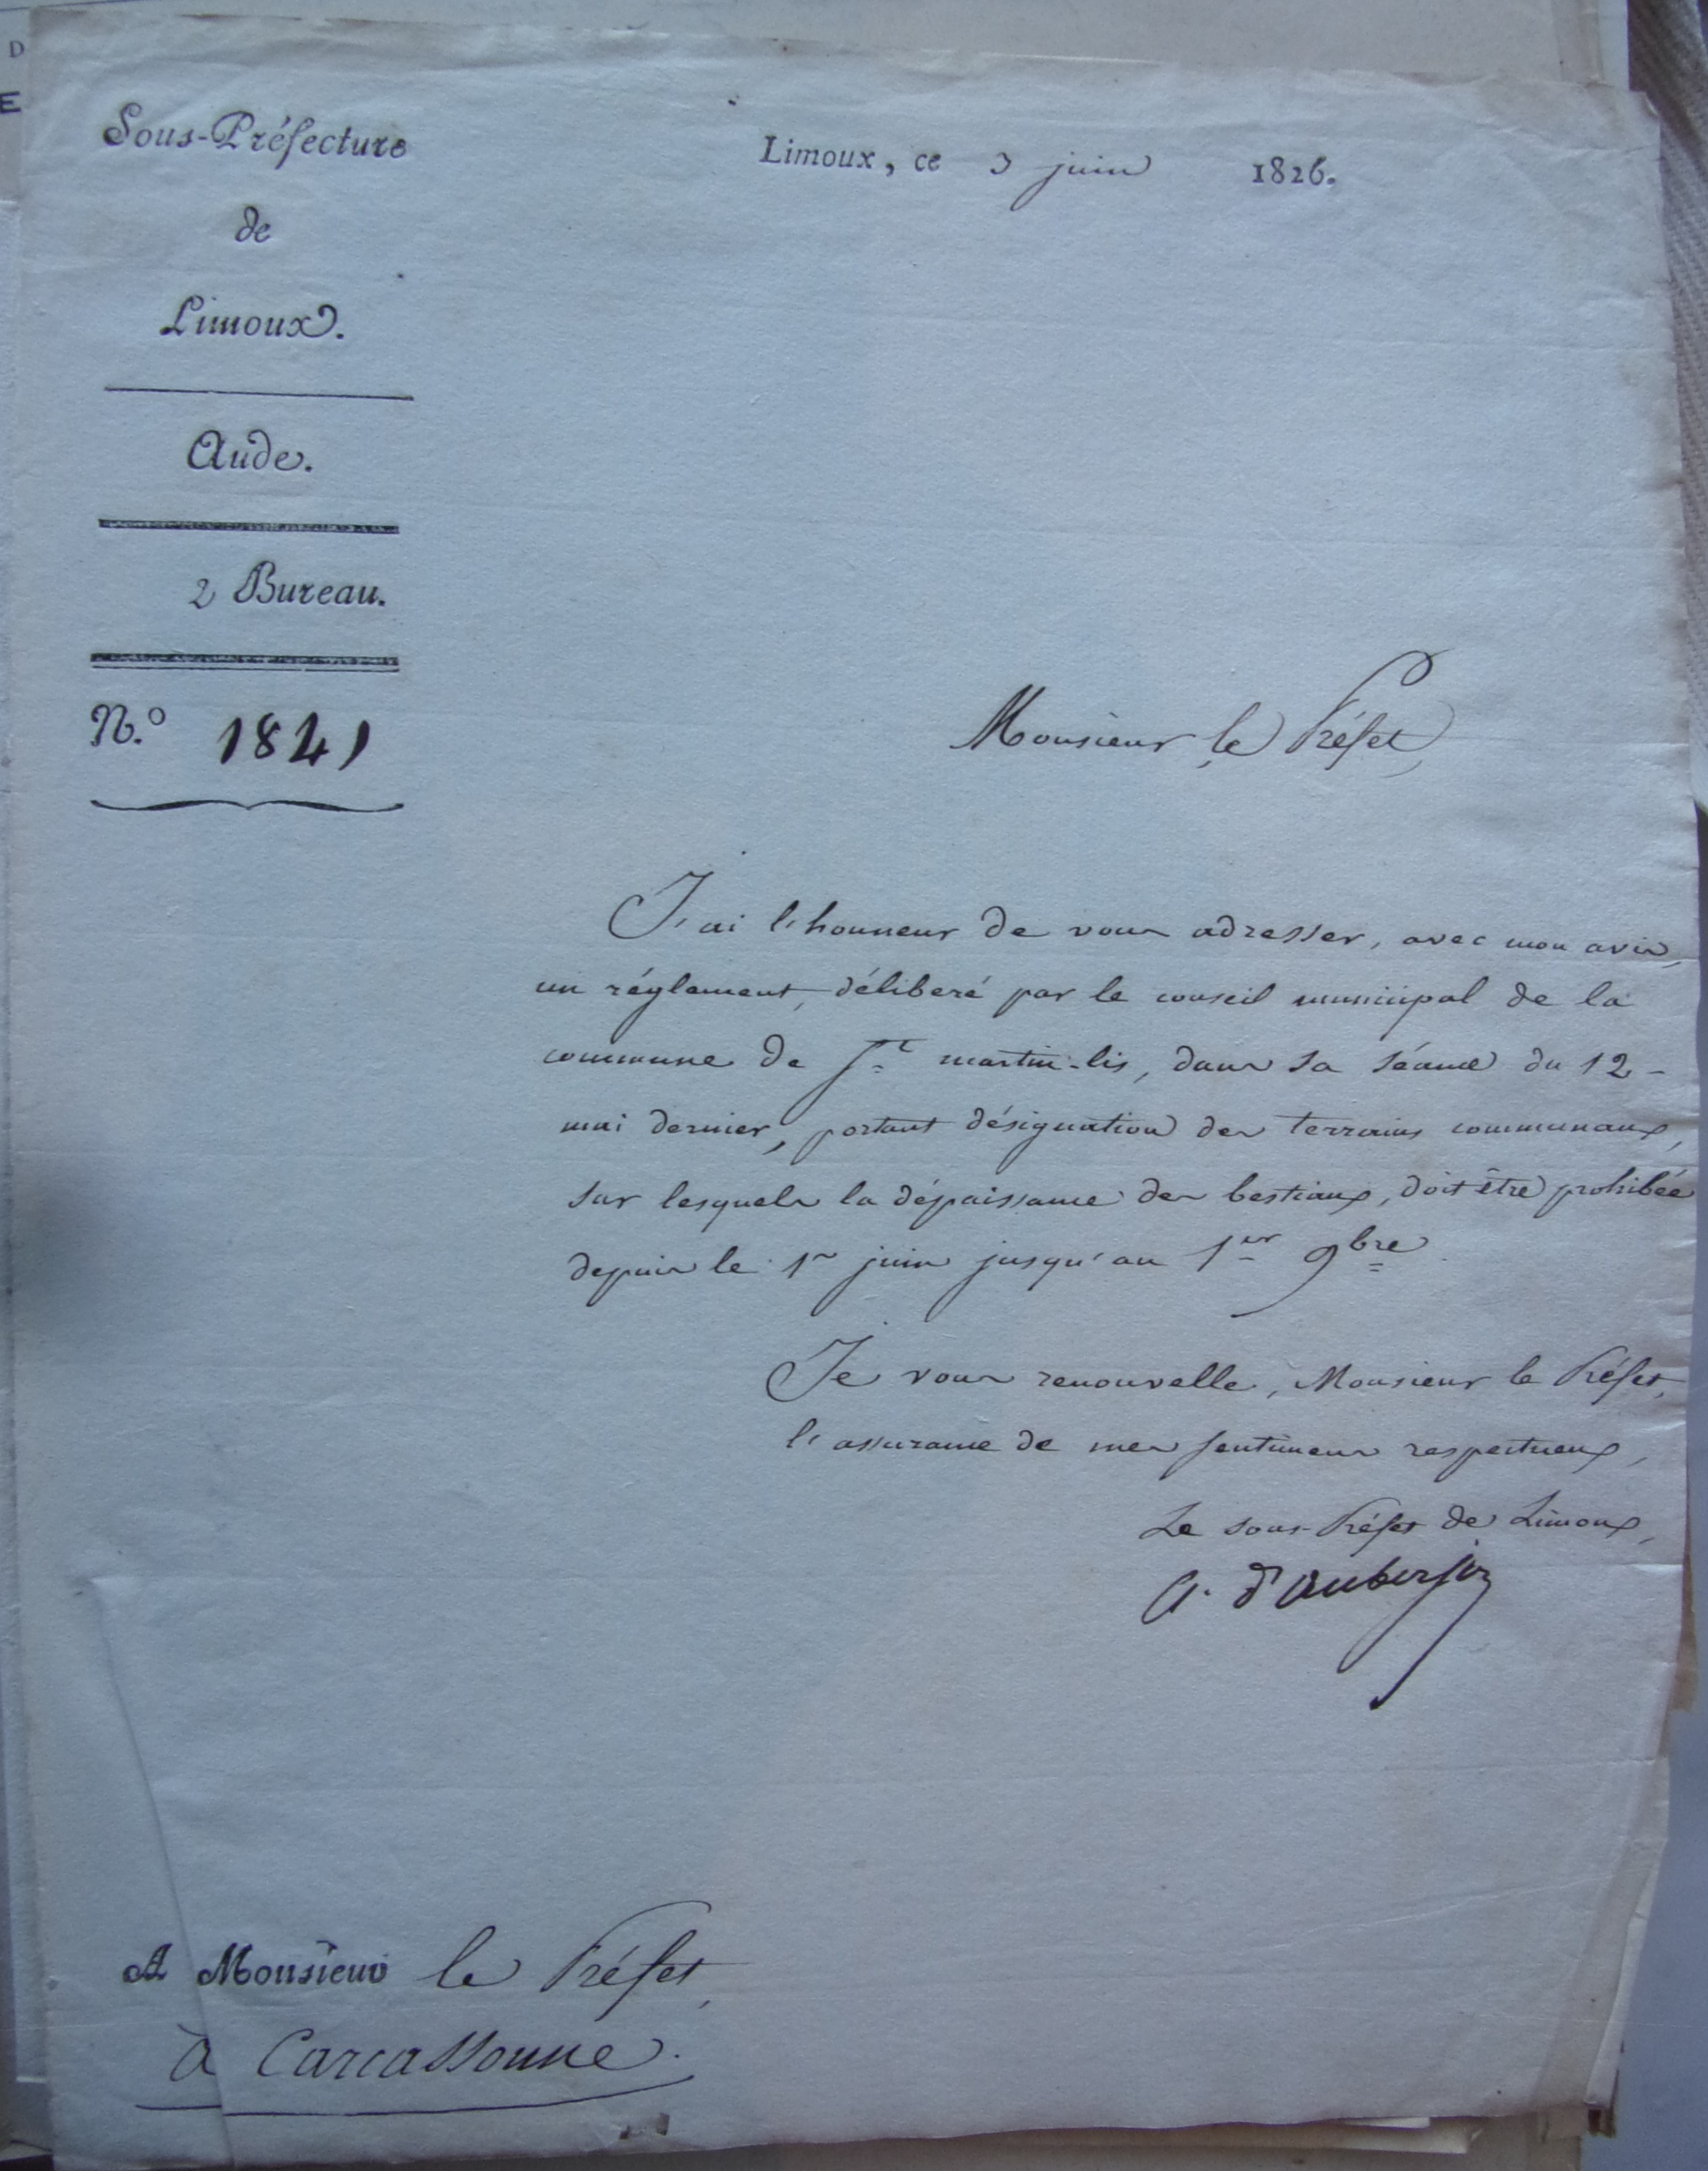 D
E
Sous-Préfecture
de
Limoux.
Aude.
2 Bureau.
N.º 1841
Limoux, ce 3 juin 1826.
Monsieur le Préfet,
J'ai l'honneur de vous adresser, avec mon avis,
un réglement, délibéré par le conseil municipal de la
commune de St martin-lis, dans sa séance du 12 -
mai dernier, portant désignation des terrains communaux,
sur lesquels la dépaissance des bestiaux, doit être prohibée
depuis le 1er juin jusqu'au 1er 9bre
Je vous renouvelle, Monsieur le Préfet,
l'assurance de mes sentimens respectueux,
Le sous-Préfet de Limoux,
A. d'Auberjon
A Monsieur le Préfet,
à Carcassonne.